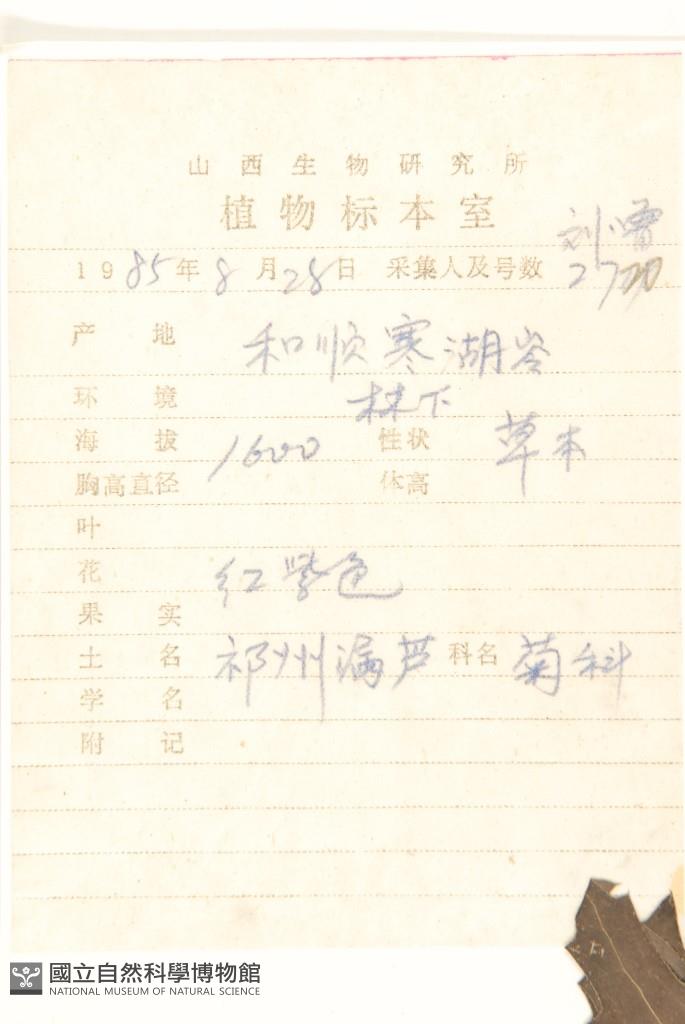 山西生物研究所
植物标本室
刘
1985年8月28日 采集人及号数 27720
产地 和顺寒湖岺
环境 林下
海拔 1600 性状 草本
胸高直径 体高
叶
花 红紫色
果实
土名 祁州漏芦 科名 菊科
学名
附记
國立自然科學博物館
NATIONAL MUSEUM OF NATURAL SCIENCE